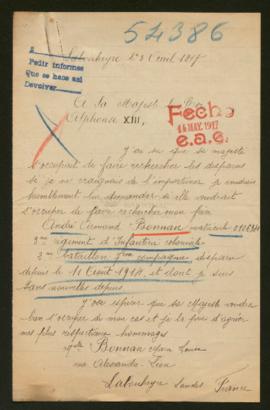 54386
Pedir informes
Que se hace así
Devolver
Labouheyre le 8 Avril 1917
A Sa Majesté le Roi
Alphonse XIII,
Fecho
14 MAY. 1917
e.a.e.
J'ai su que sa majesté
s'occupait de faire rechercher les disparus
si je ne craignais de l'importuner je viendrais
humblement lui demander si elle voudrait
s'occuper de faire rechercher mon frère
André Armand Bonnan matricule
3me régiment d'Infanterie coloniale
3me bataillon compagnie disparu
depuis le 11 Août 1914, et dont je suis
sans nouvelles depuis
J'ose espérer que sa Majesté voudra
bien s'occuper de mon cas et je la prie d'agréer
mes plus respectueux hommages
Bonnan Louise
rue
Labouheyre Landes France